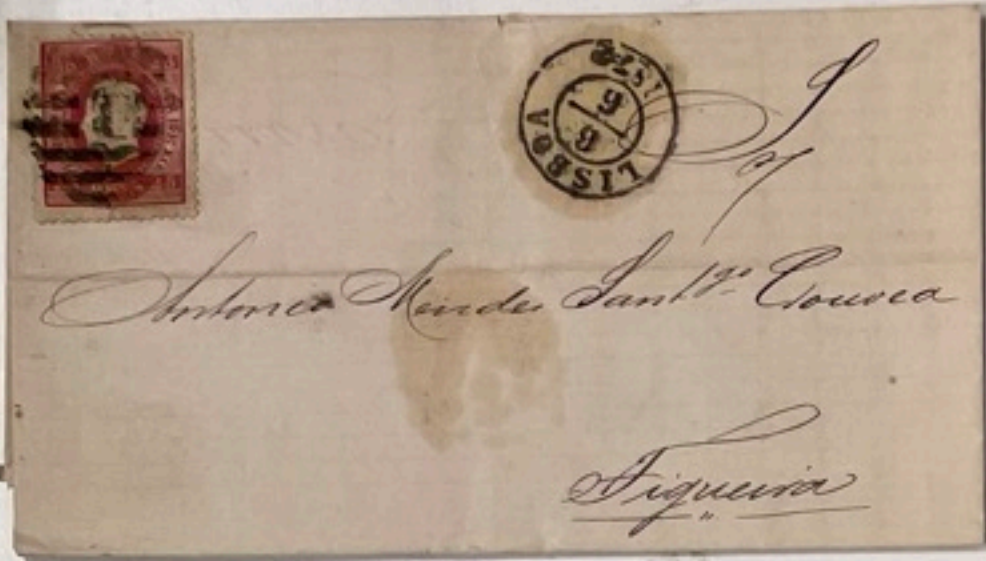 LISBOA
6
6
S
Antonio Mendes Sant.º Gouvea
Figueira